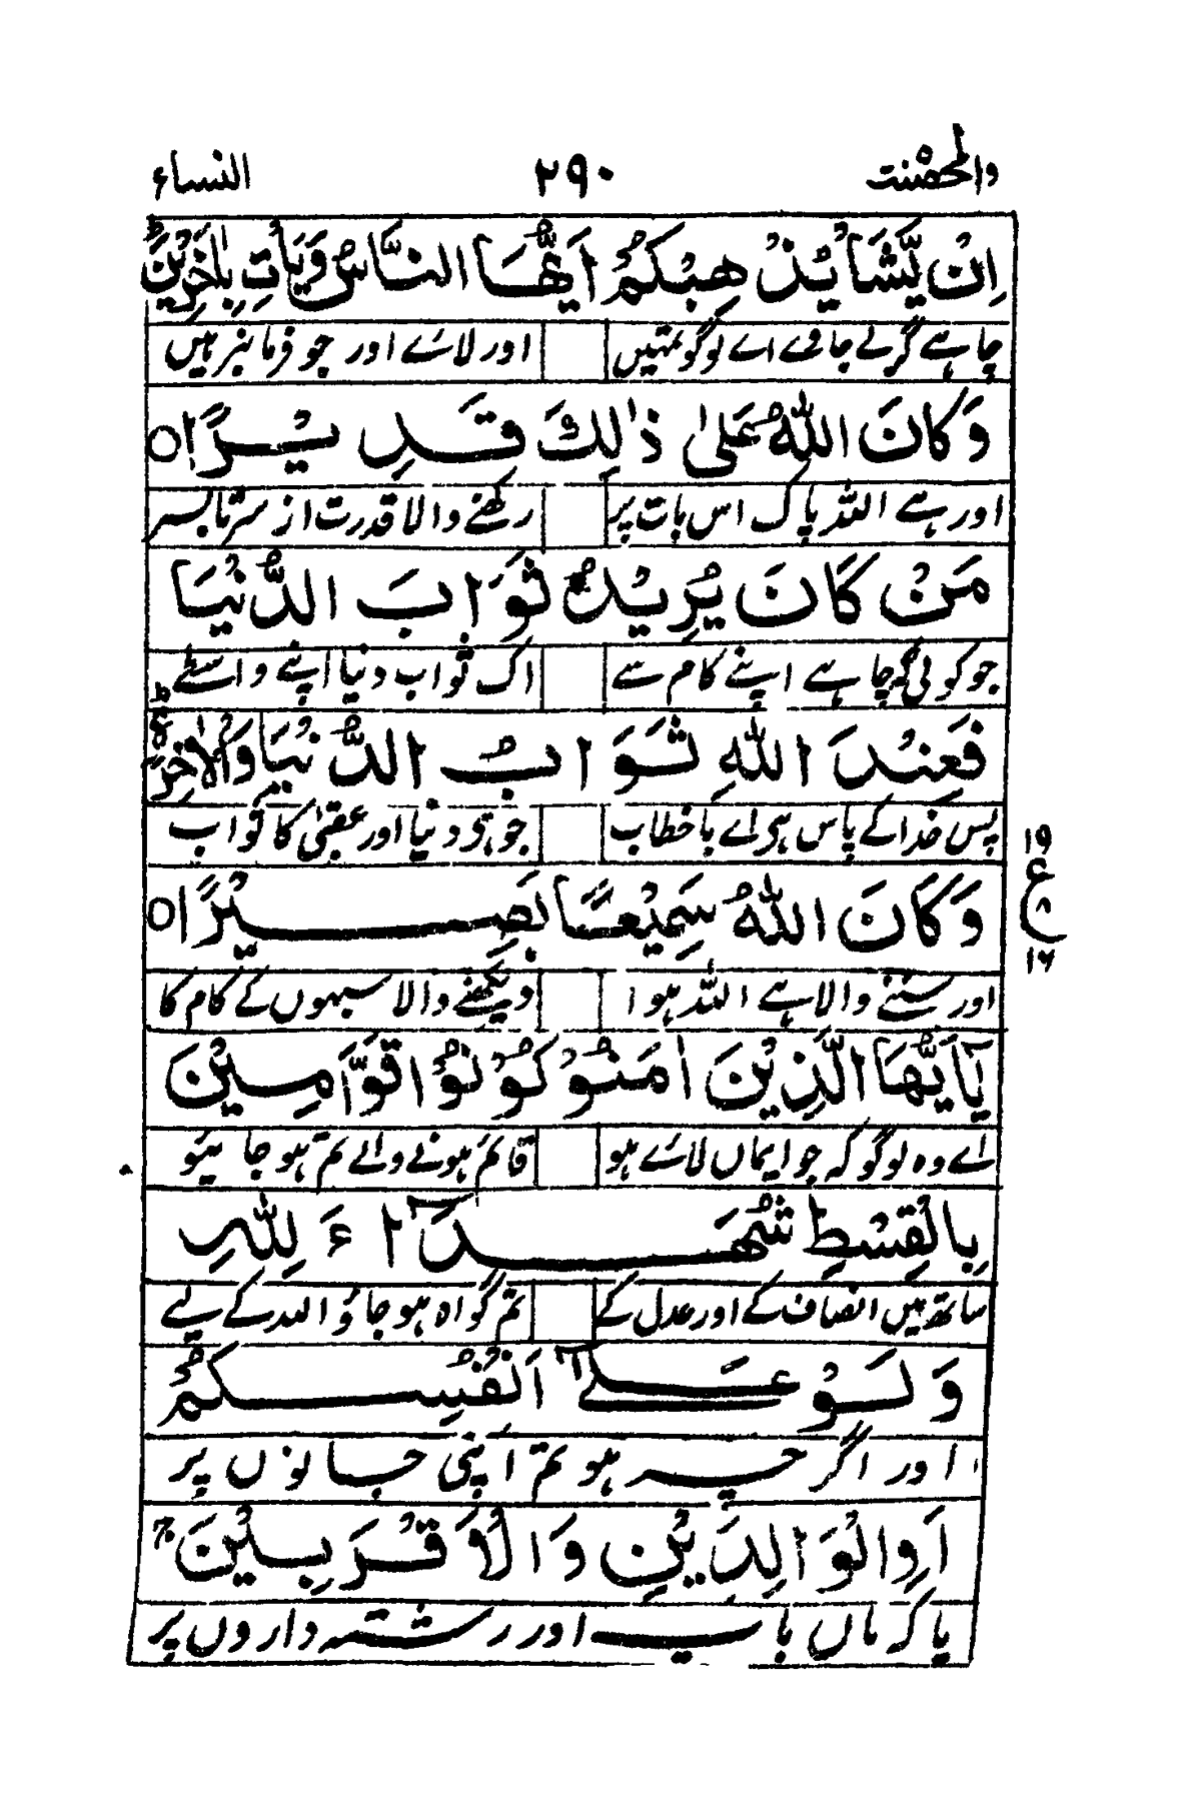 والمحصنت ٢٩٠ النساء
اِنْ يَّشَاْ يُذْهِبْكُمْ اَيُّهَا النَّاسُ وَيَاْتِ بِاٰخَرِيْنَ ؕ
چاہے گر لے جاوے اے لوگو تمہیں اور لائے اور جو فرمانبر ہیں
وَكَانَ اللّٰهُ عَلٰى ذٰلِكَ قَدِيْرًا ○
اور ہے اللہ پاک اس بات پر رکھنے والا قدرت از سرتا بسر
مَنْ كَانَ يُرِيْدُ ثَوَابَ الدُّنْيَا
جو کوئی کہ چاہے اپنے کام سے اک ثواب دنیا اپنے واسطے
فَعِنْدَ اللّٰهِ ثَوَابُ الدُّنْيَا وَالْاٰخِرَةِ ؕ
پس خدا کے پاس ہی اے باخطاب جو ہی دنیا اور عقبیٰ کا ثواب
وَكَانَ اللّٰهُ سَمِيْعًا بَصِيْرًا ○
١٩
ع
٨
١٦
اور سننے والا ہے اللہ ہوا دیکھنے والا سبہوں کے کام کا
يٰۤاَيُّهَا الَّذِيْنَ اٰمَنُوْ كُوْنُوْا قَوَّامِيْنَ
اے وہ لوگو کہ جو ایماں لائے ہو قائم ہونے والے تم ہو جائیو
بِالْقِسْطِ شُهَدَآءَ لِلّٰهِ
ساتھ ہیں انصاف کے اور عدل کے تم گواہ ہو جاؤ اللہ کے لیے
وَلَوْ عَلٰۤى اَنْفُسِكُمْ
اور اگرچہ ہو تم اپنی جانوں پر
اَوِالْوَالِدَيْنِ وَالْاَقْرَبِيْنَ ۚ
یا کہ ماں باپ اور رشتہ داروں پر